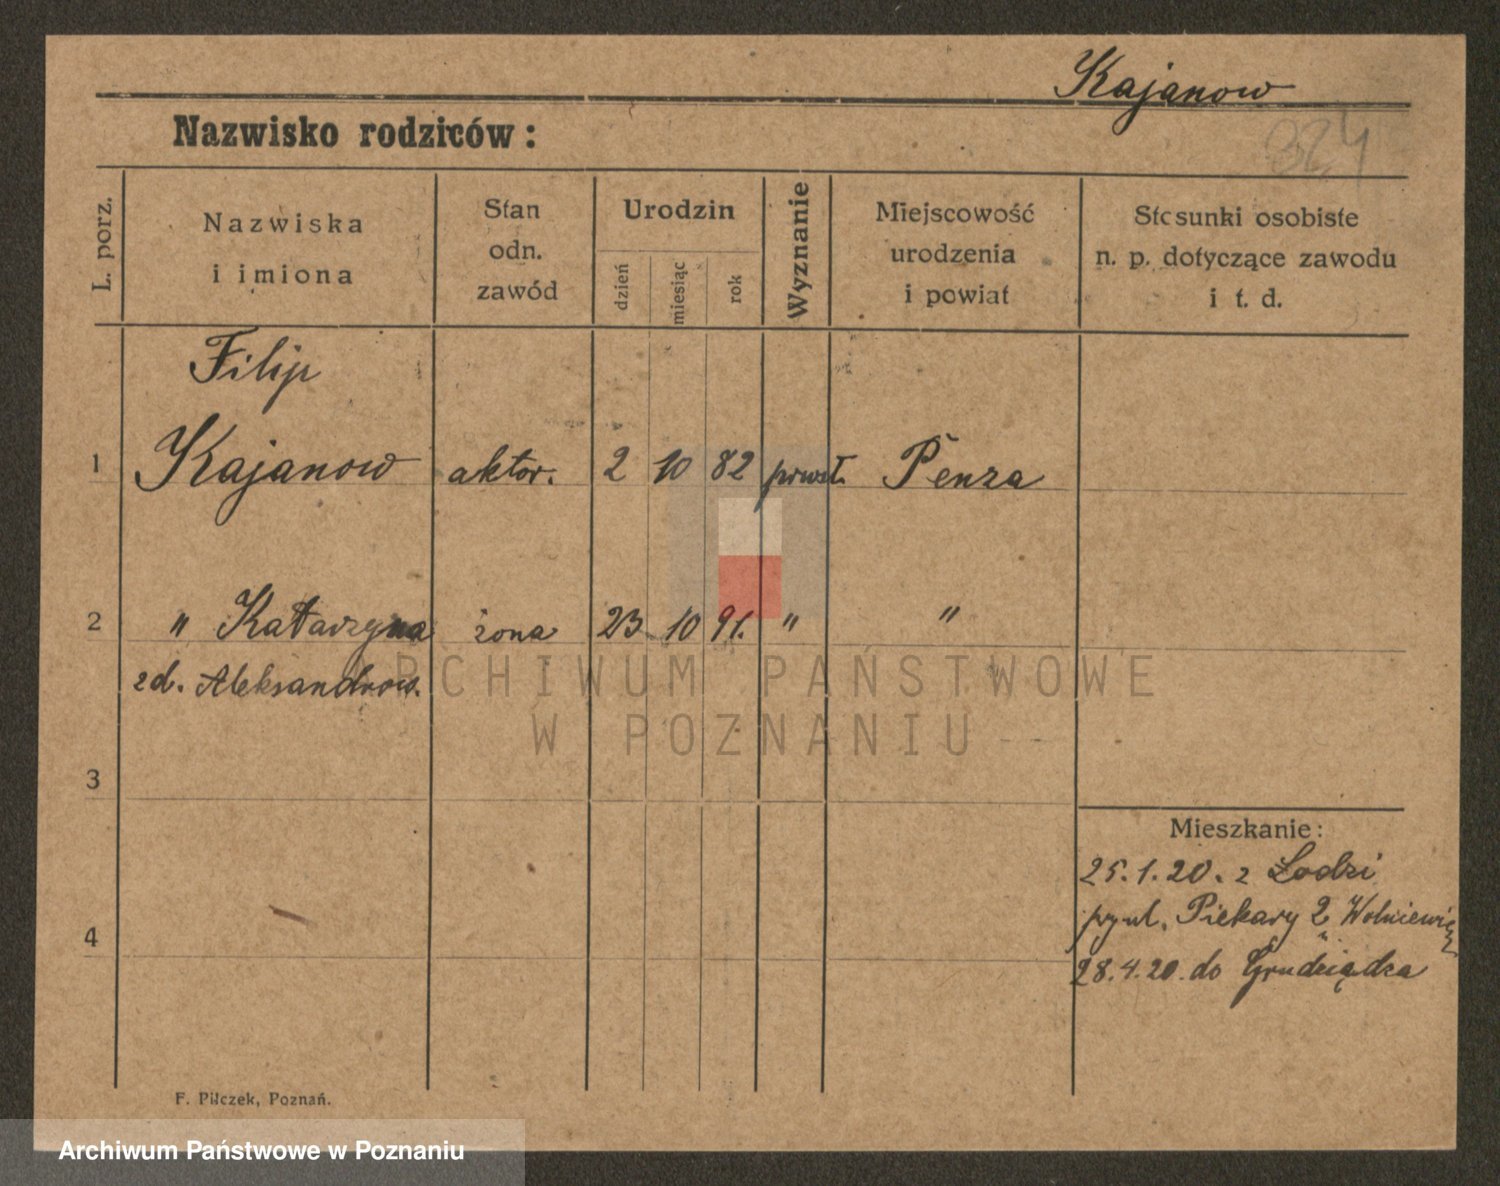 Kajanow
324
Nazwisko rodziców:
L. porz.
Nazwiska
i imiona
Stan
odn.
zawód
Urodzin
dzień
miesiąc
rok
Wyznanie
Miejscowość
urodzenia
i powiat
Stosunki osobiste
n. p. dotyczące zawodu
i t. d.
Filip
1 Kajanow aktor. 2 10 82 prwsł. Penza
2 " Katarzyna żona 23 10 91. " "
zd. Aleksandrow.
ARCHIWUM PAŃSTWOWE
W POZNANIU
3
Mieszkanie:
25.1.20. z Łodzi
4
Piekary 2 Wolniewicz
28.4.20. do Grudziądza
F. Pilczek, Poznań.
Archiwum Państwowe w Poznaniu